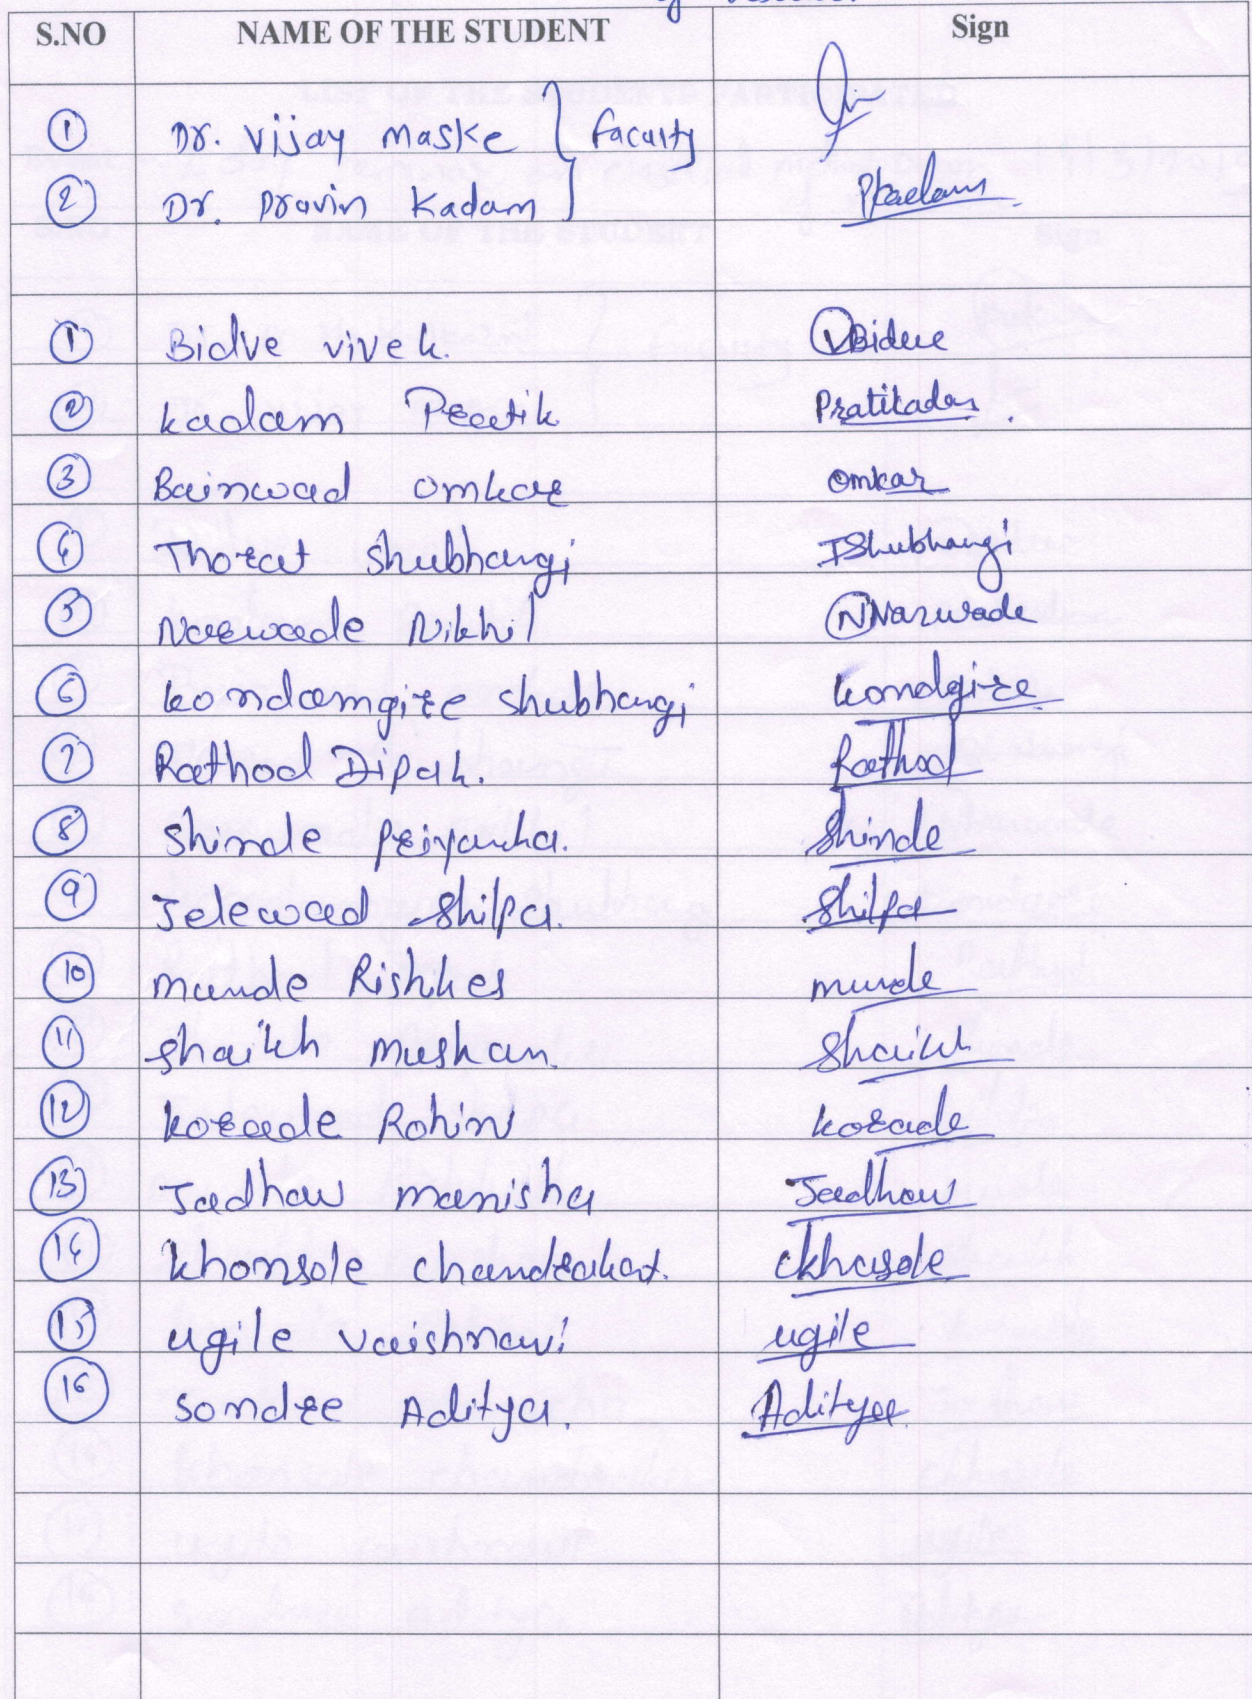 S.NO NAME OF THE STUDENT Sign
1 Dr. Vijay Maske } Faculty
2 Dr. Pravin Kadam } Pkadam
1 Bidve vivek. VBidve
2 kadam Pratik Pratikadam.
3 Bainwad omkar omkar
4 Thorat shubhangi TShubhangi
5 Narwade Nikhil NNarwade
6 kondamgire shubhangi kondgire
7 Rathod Dipak. Rathod
8 shinde Priyanka. shinde
9 Jelewad shilpa. shilpa
10 munde Rishikes munde
11 shaikh muskan. Shaikh
12 korade Rohini korade
13 Jadhav manisha Jadhav
14 khonsole chandrakant. ckhasole
15 ugile vaishnavi ugile
16 Sondre Aditya. Aditya.